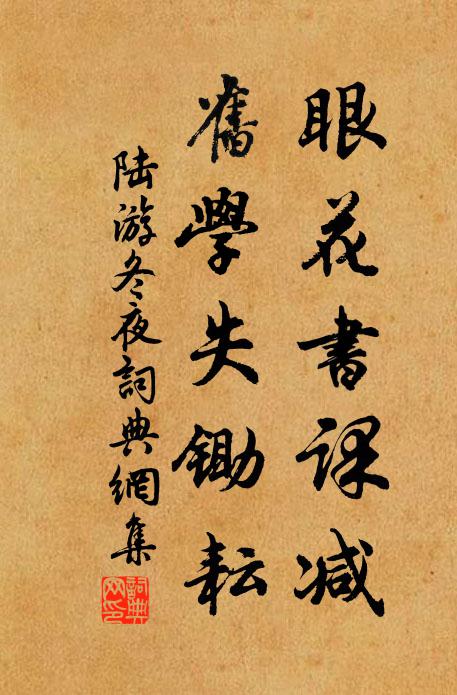 眼花書課减
舊學失鋤耘
陸游冬夜詞典網集
詞典网印